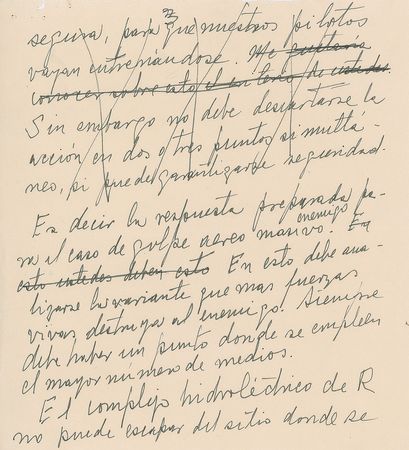 segura, para que nuestros pilotos
vayan entrenándose. Me gustaría
conocer sobre esto el criterio de ustedes
Sin embargo no debe descartarse la
acción en dos o tres puntos simultá-
neos, si puede garantizarse seguridad.
Es decir la respuesta preparada pa-
ra el caso de golpe aereo enemigo masivo. En
esto ustedes deben esto En esto debe ana-
lizarse la variante que mas fuerzas
vivas destruya al enemigo. Siempre
debe haber un punto donde se empleen
el mayor número de medios.
El complejo hidroléctrico de R
no puede escapar del sitio donde se